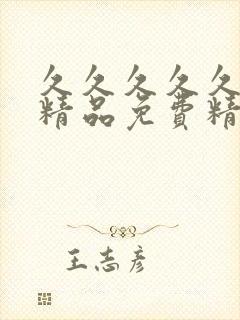 久久久久久
精品免费精
王志彦